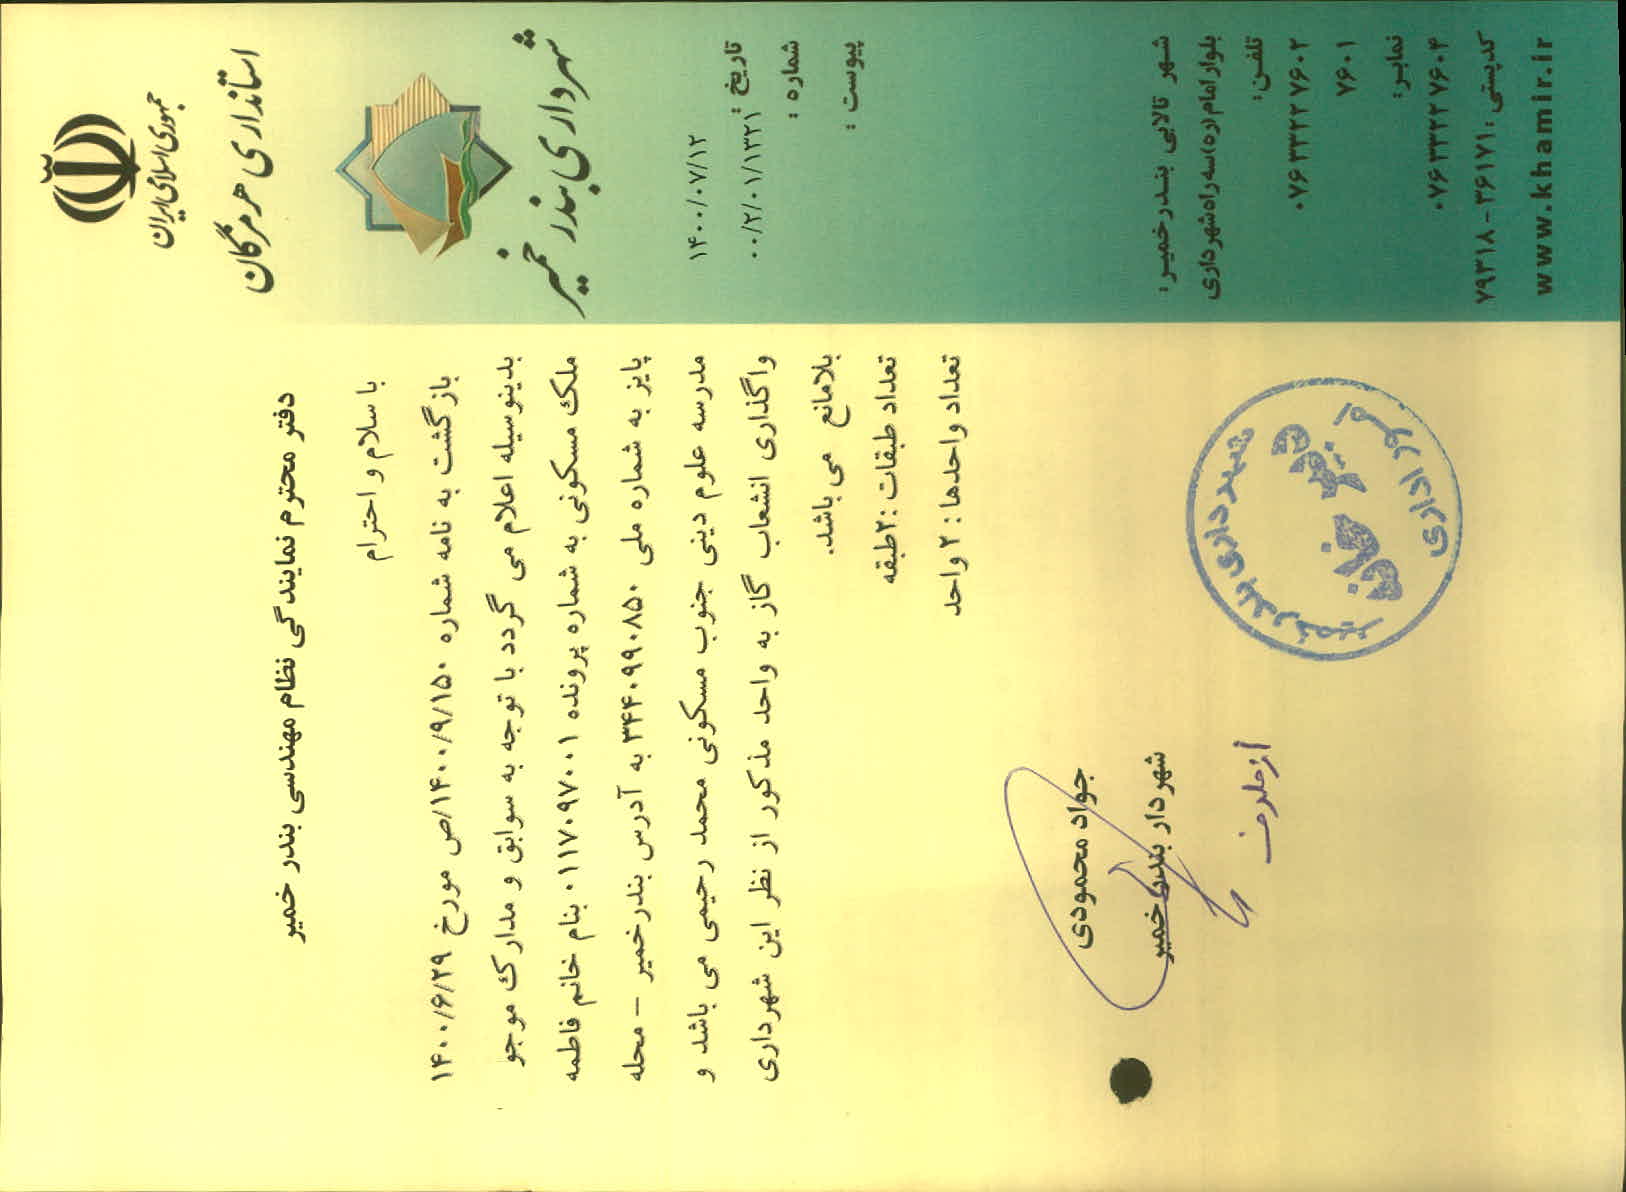 جمهوری اسلامی ایران
استانداری هرمزگان
شهرداری بندر خمیر
تاریخ : ۱۴۰۰/۰۷/۱۲
شماره : ۰۰/۲/۰۱/۱۳۲۱
پیوست :
دفتر محترم نمایندگی نظام مهندسی بندر خمیر
با سلام و احترام
بازگشت به نامه شماره ۱۴۰۰/۹/۱۵۰/ص مورخ ۱۴۰۰/۶/۲۹
بدینوسیله اعلام می گردد با توجه به سوابق و مدارک موجو
ملک مسکونی به شماره پرونده ۰۱۱۷۰۹۷۰۰۱ بنام خانم فاطمه
پایز به شماره ملی ۳۴۴۰۹۹۰۸۵۰ به آدرس بندرخمیر – محله
مدرسه علوم دینی جنوب مسکونی محمد رحیمی می باشد و
واگذاری انشعاب گاز به واحد مذکور از نظر این شهرداری
بلامانع می باشد.
تعداد طبقات :۲طبقه
تعداد واحدها : ۲ واحد
جواد محمودی
شهردار بندرخمیر
از طرف
شهرداری بندر خمیر
امور اداری
شهر تالابی بندرخمیر:
بلوار امام(ره)سه راه شهرداری
تلفن:
۰۷۶۳۳۲۲۷۶۰۲
۷۶۰۱
نمابر:
۰۷۶۳۳۲۲۷۶۰۴
کدپستی :۳۶۱۷۱ - ۷۹۳۱۸
www.khamir.ir